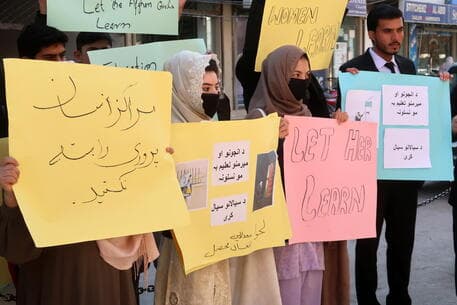 Let the Afghan
Learn
WOMEN
LEARN
مراکز انسان
پروری را بسته
نکنید.
د انجونو او
میرمنو تعلیم به
مو
د سیالانو سیال
کړی
LET HER
LEARN
د انجونو او
میرمنو تعلیم به
مو
د سیالانو سیال
کړی